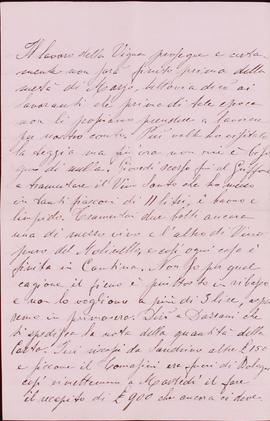 Il lavoro della Vigna prosegue e certa
mente non sarà finito prima della
metà di Marzo, tuttavia dico ai
lavoranti che prima di tale epoca
non li possiamo prendere a lavorare
per nostro conto. Più volte ho
la seggia ma fin ora non vi è biso
gno di nulla. Giovedì scorso fui al
a tramutare il Vino Santo che ho messo
in tanti fiasconi di 11 litri, è buono e
limpido. Tramutai due botti ancora
una di mezzo vino e l'altra di Vino
puro del Molinello, e così ogni cosa è
finita in Cantina. Non so per qual
cagione il fieno è piuttosto in ribasso
e non lo vogliono a più di 3 lire, aspet
teremo in primavera. Dirò a Dassani che
ti spedisca la nota della quantità della
Carta. Ieri riscossi da Sandrino altre £ 150
e siccome il Tomasini era fuori di Bologna
così rimettemmo a Martedì il fare
il recapito di £ 900 che ancora ci deve.